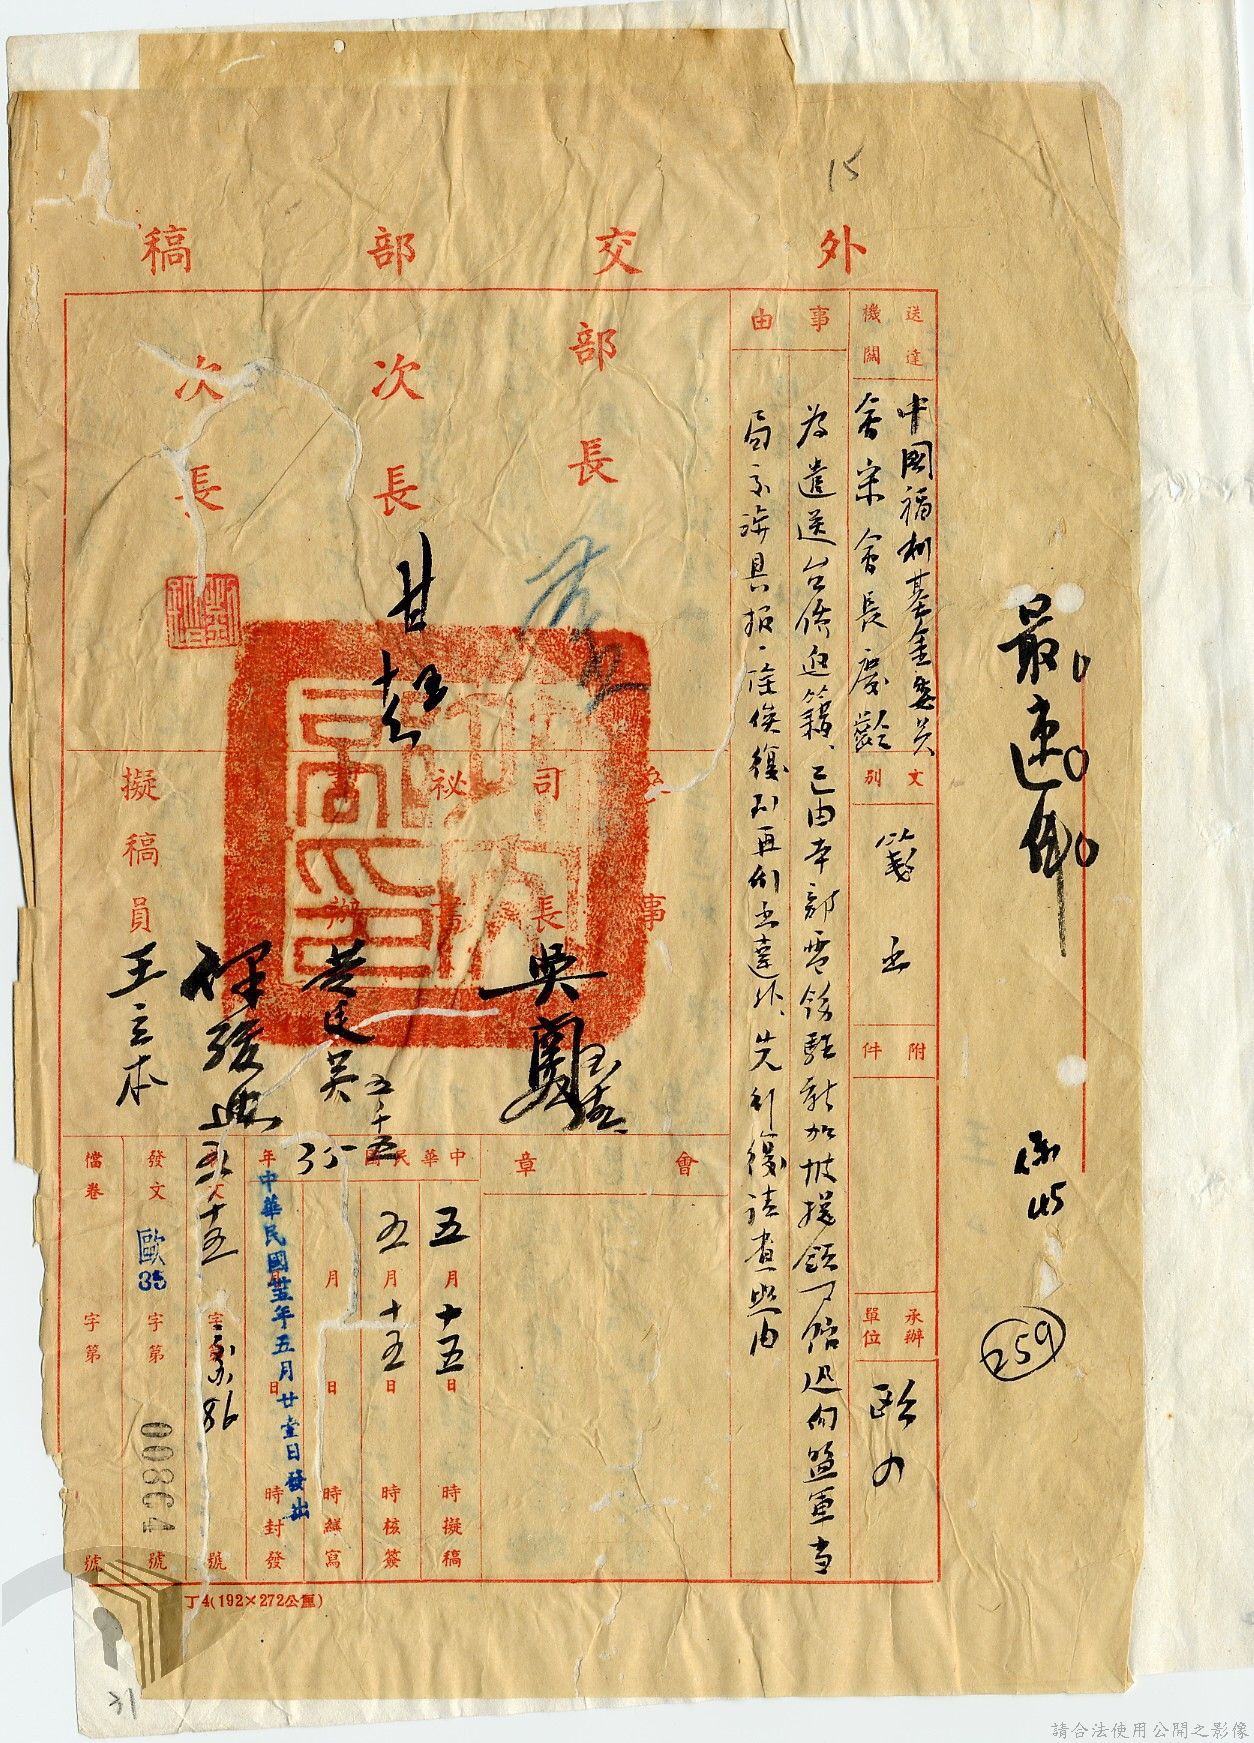 15
外交部稿
最速件
259
送達機關
中國福利基金委員
會宋會長慶齡
文別
箋函
附件
承辦單位
歐
事由
為遣送台僑返籍、已由本部電飭駐新加坡總領事館迅向盟軍當
局交涉具報、除俟復到再行函達外、先行復請查照由
部長
次長
甘
次長
參事
司長
吳
秘書
幫辦
擬稿員
王立本
會章
中華民國35年
五月十五日 時擬稿
五月十五日 時核簽
月 日 時繕寫
月 日 時封發
中華民國卅五年五月廿壹日發出
五 十五
字 86 號
發文 歐35 字第 00804 號
檔卷 字第 號
丁4(192×272公厘)
31
請合法使用公開之影像